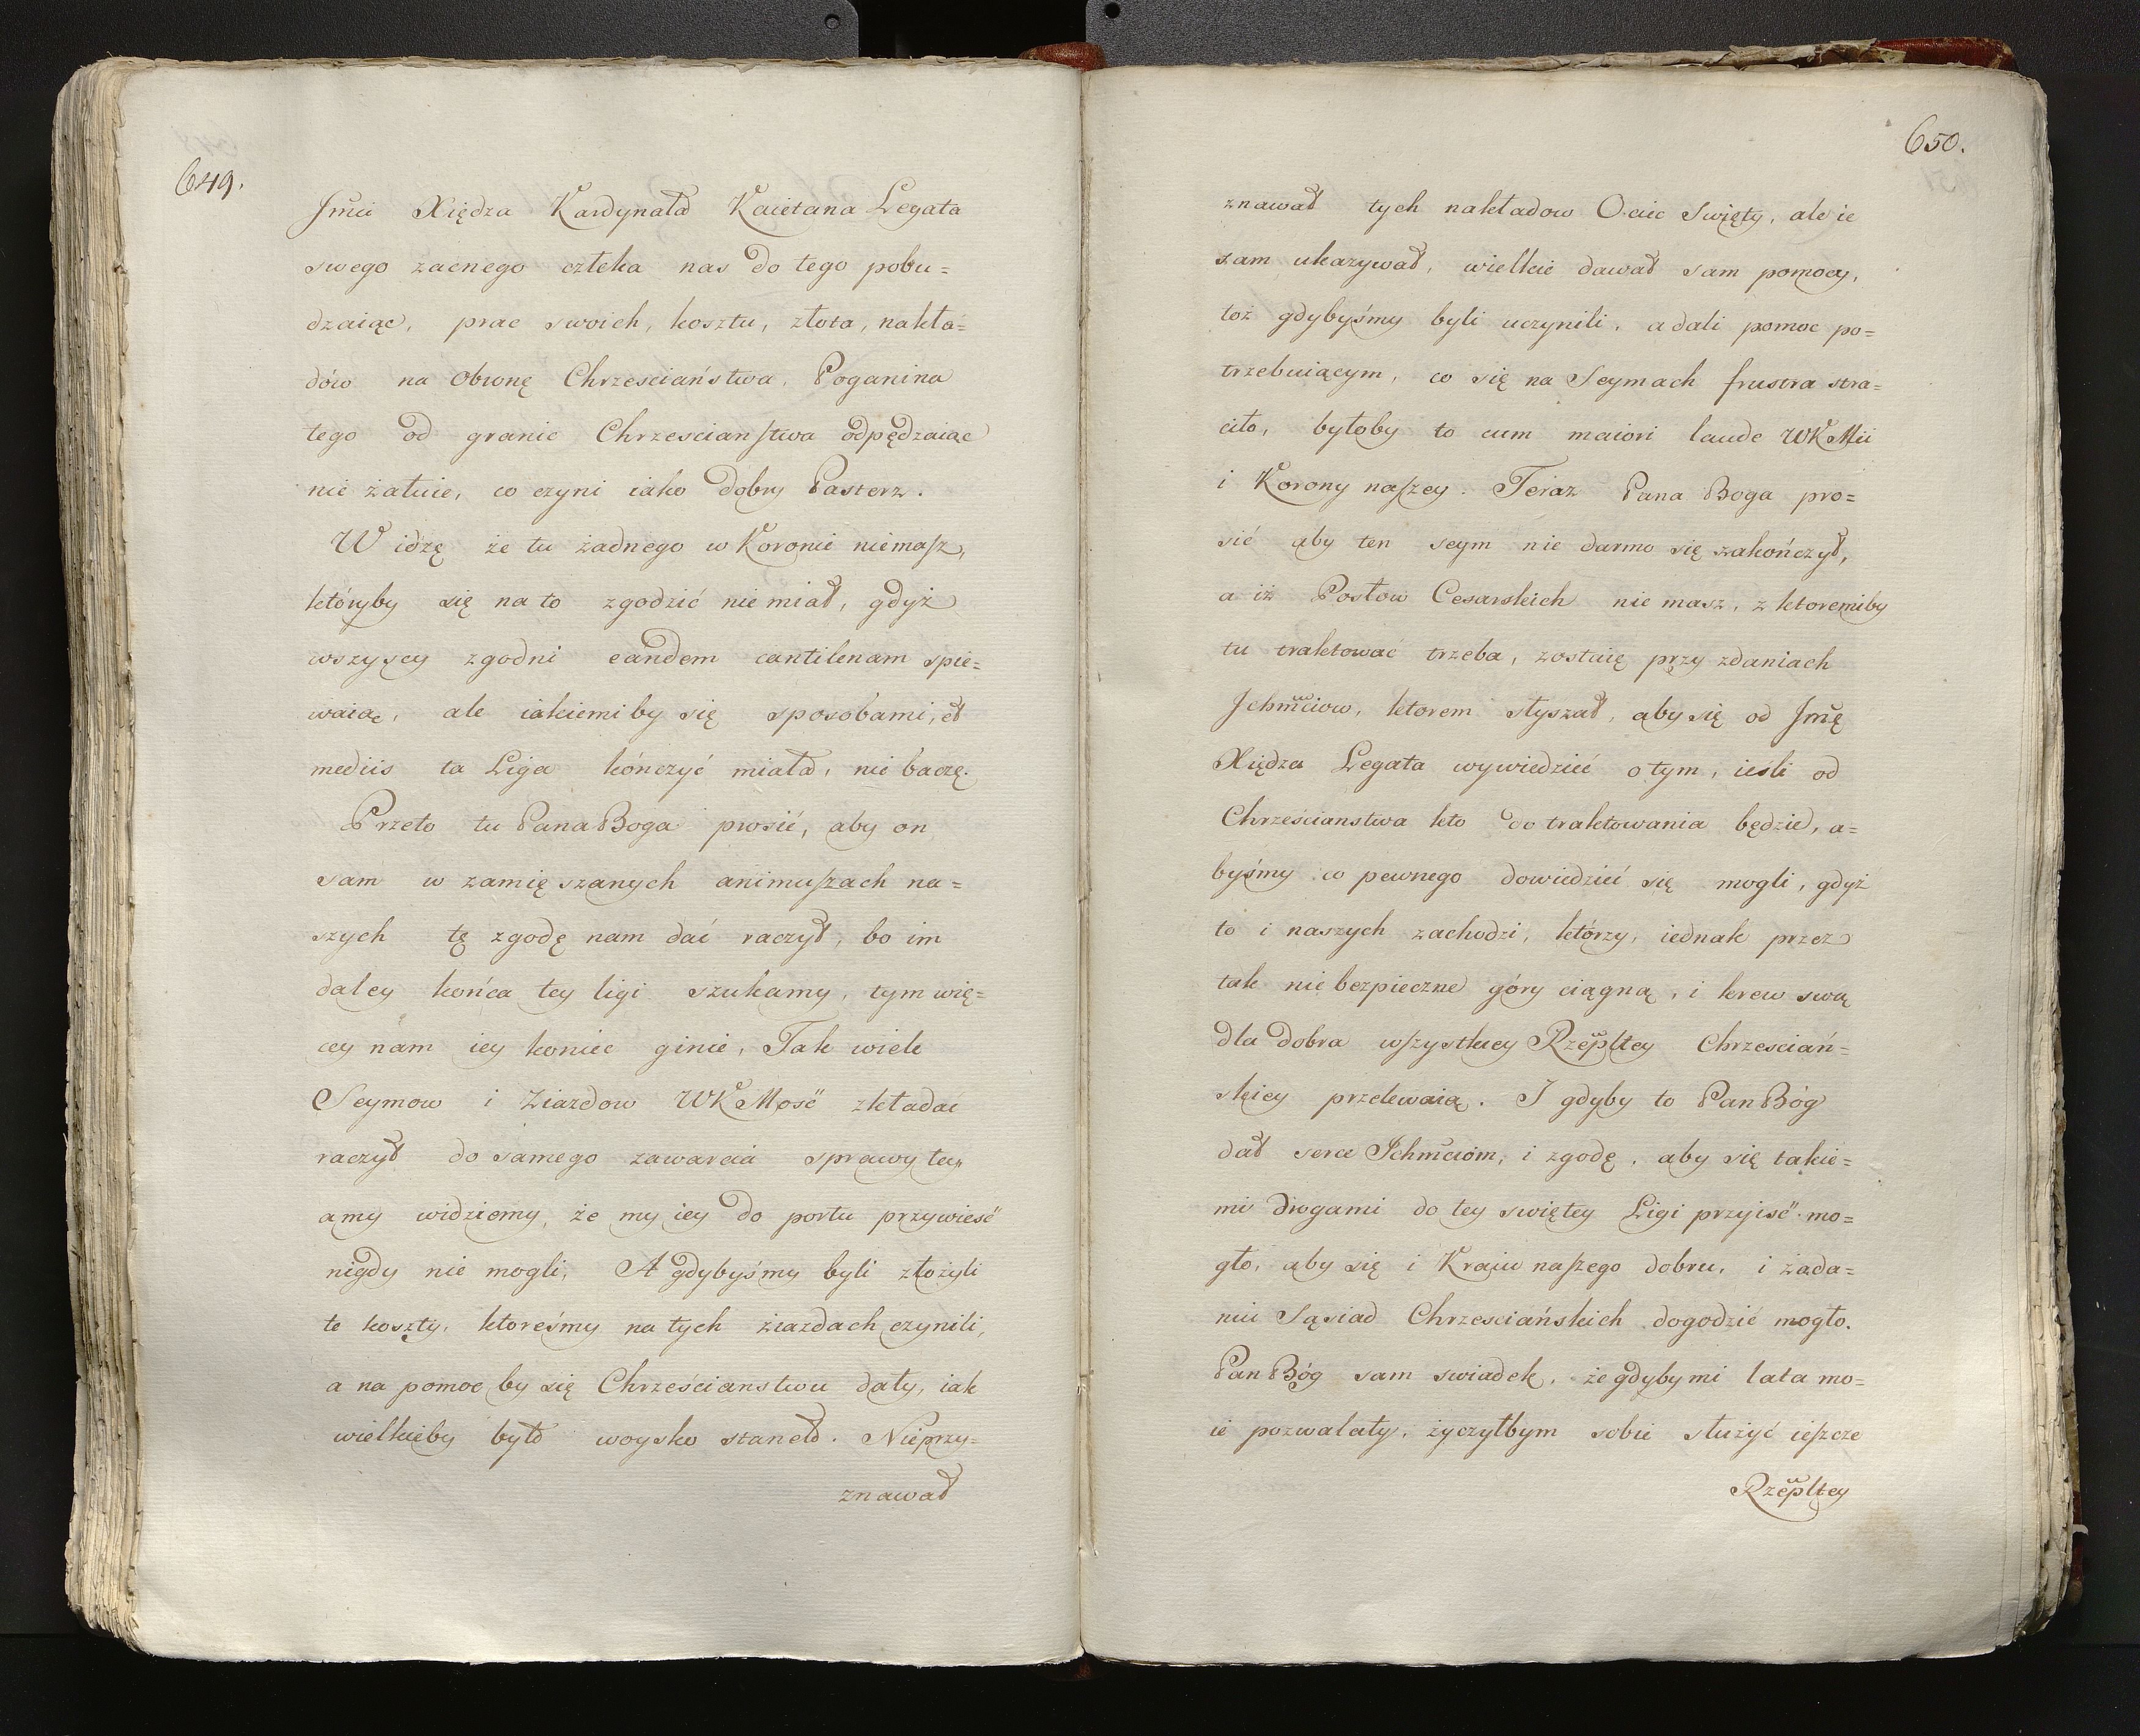 649.
Jmci Xiędza Kardynała Kaietana Legata
swego zacnego człeka nas do tego pobu=
dzaiąc, prac swoich, kosztu, złota, nakła=
dów na obronę Chrzesciaństwa, Poganina
tego od granic Chrzescianſtwa odpędzaiąc
nie żałuie, co czyni iako dobry Pasterz.
Widzę że tu żadnego w Koronie niemaſz,
któryby się na to zgodzić nie miał, gdyż
wszyscy zgodni eandem cantilenam spie=
waią, ale iakiemiby się sposobami, et
mediis ta Liga kónczyć miała, nie baczę.
Przeto tu Pana Boga prosić, aby on
sam w zamięszanych animuſzach na=
szych tę zgodę nam dać raczył, bo im
daley końca tey ligi szukamy, tym wię=
cey nam iey koniec ginie, Tak wiele
Seymow i Ziazdow WKMość zkładać
raczył do samego zawarcia sprawy tey,
a my widziemy, że my iey do portu przywieść
nigdy nie mogli, A gdybyśmy byli złożyli
te koszty, ktoreśmy na tych ziazdach czynili,
a na pomoc by się Chrześcianstwu dały, iak
wielkieby było woysko staneło. Nieprzy=
znawał
650.
znawał tych nakładow Ociec Swięty, ale ie
sam ukazywał, wielkie dawał sam pomocy,
toż gdybyśmy byli uczynili, a dali pomoc po=
trzebuiącym, co się na Seymach frustra stra=
ciło, byłoby to cum maiori laude WKMci
i Korony naſzey. Teraz Pana Boga pro=
sić aby ten seym nie darmo się zakończył,
a iż Posłow Cesarskich nie masz, z ktoremiby
tu traktować trzeba, zostaię przy zdaniach
Jchmciow, ktorem słyszał, aby się od Jmę
Xiędza Legata wywiedzieć o tym, ieśli od
Chrześcianstwa kto do traktowania będzie, a=
byśmy co pewnego dowiedzieć się mogli, gdyż
to i naszych zachodzi, którzy, iednak przez
tak niebezpieczne góry ciągną, i krew swą
dla dobra wſzystkiey Rzepltey Chrzesciań=
skiey przelewaią. I gdyby to Pan Bóg
dał serce Ichmciom, i zgodę, aby się takie=
mi drogami do tey swiętey Ligi przyiść mo=
gło, aby się i Kraiu naſzego dobru, i żąda=
niu Sąsiad Chrzesciańskich dogodzić mogło.
Pan Bóg sam swiadek, że gdyby mi lata mo=
ie pozwalały, życzyłbym sobie służyć ieſzcze
Rzepltey